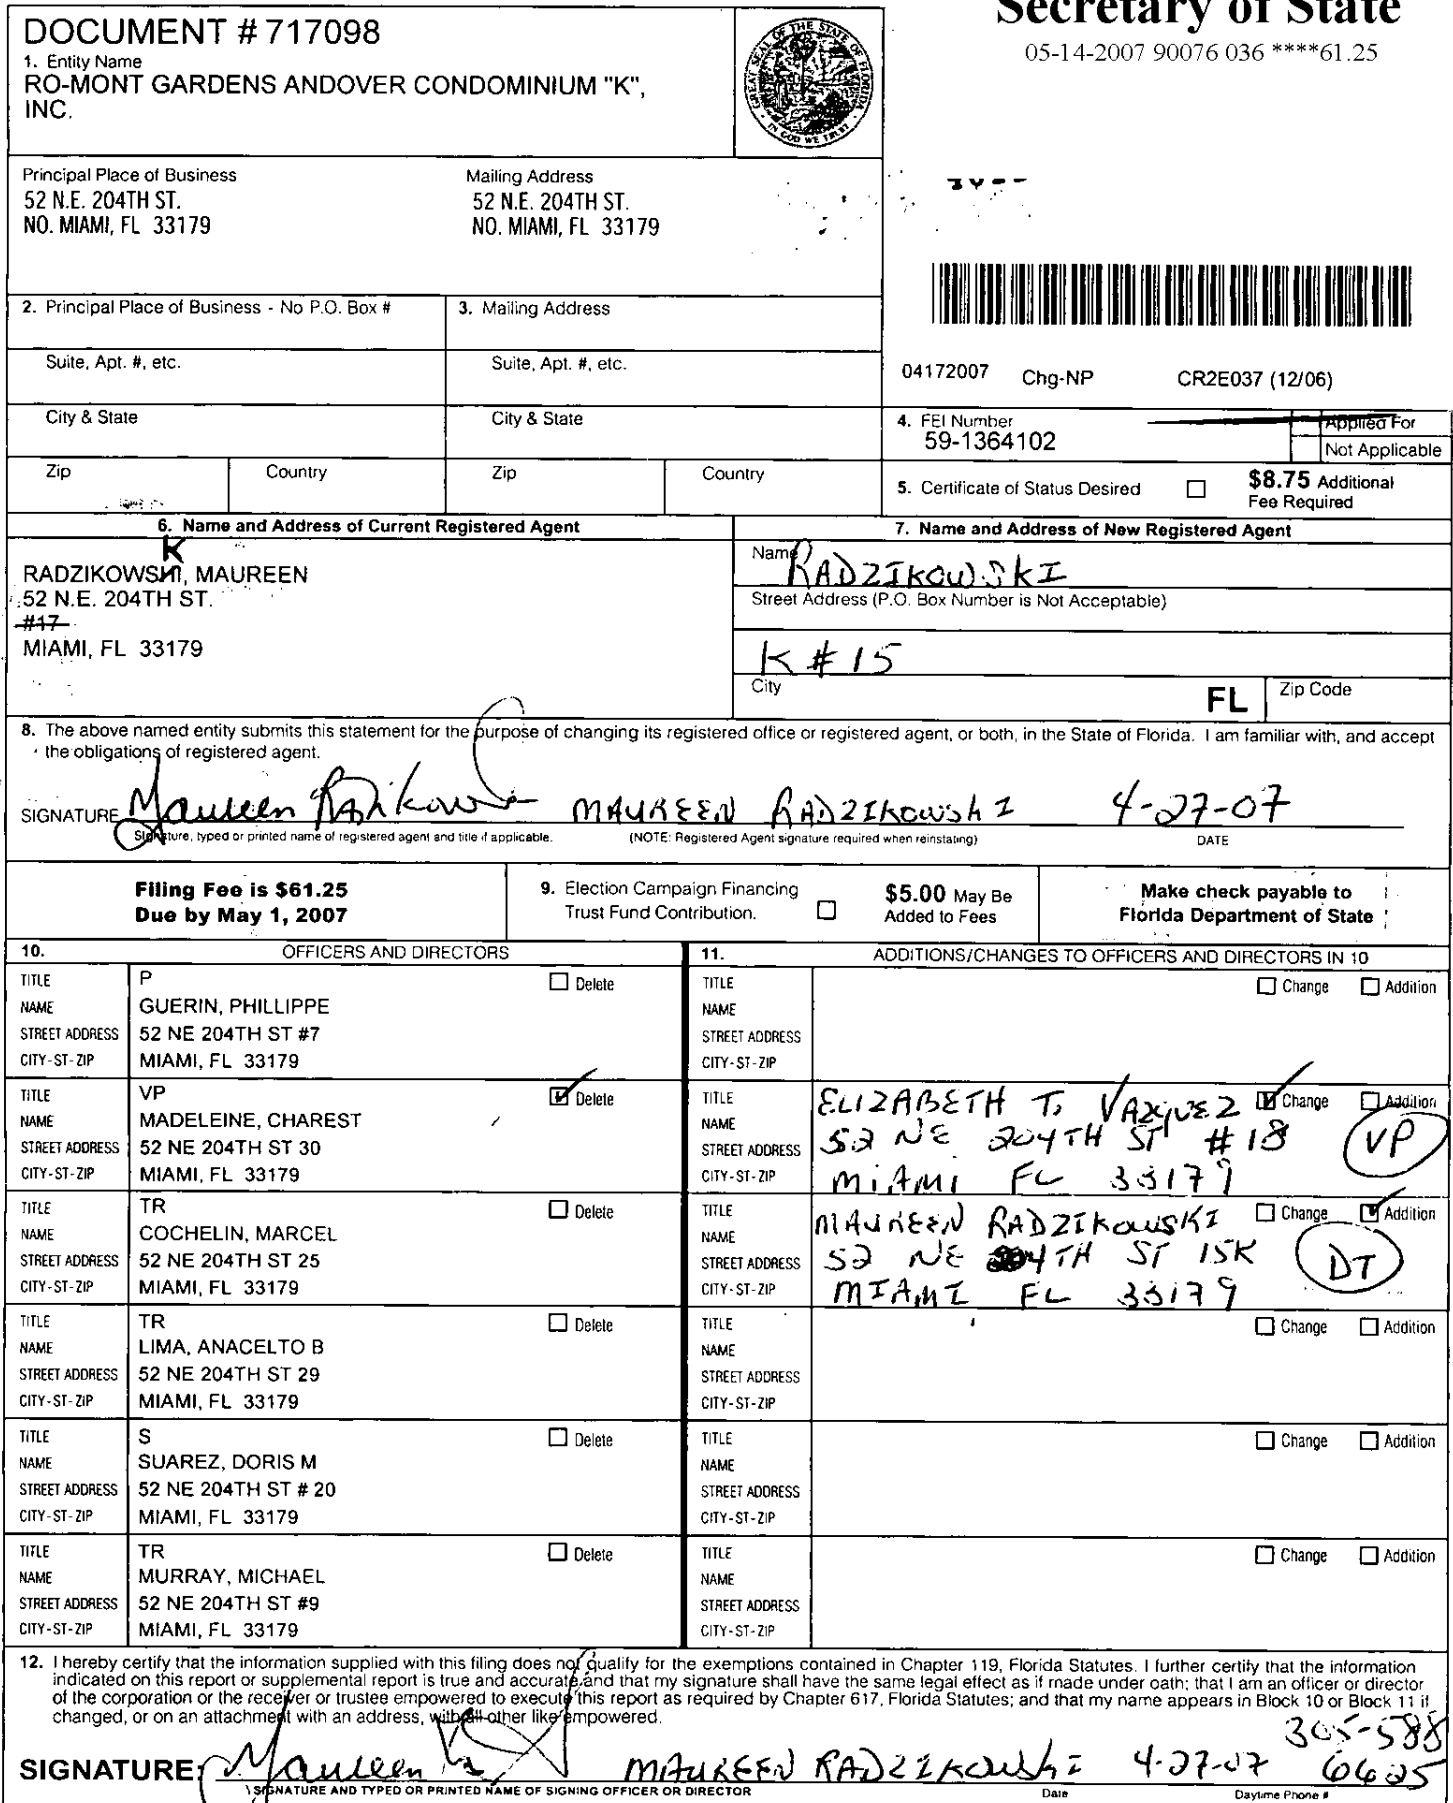 Secretary of State
05-14-2007 90076 036 ****61.25
DOCUMENT # 717098
1. Entity Name
RO-MONT GARDENS ANDOVER CONDOMINIUM "K",
INC.
GREAT SEAL OF THE STATE OF FLORIDA
IN GOD WE TRUST
Principal Place of Business
52 N.E. 204TH ST.
NO. MIAMI, FL 33179
Mailing Address
52 N.E. 204TH ST.
NO. MIAMI, FL 33179
2. Principal Place of Business - No P.O. Box #
3. Mailing Address
Suite, Apt. #, etc.
Suite, Apt. #, etc.
City & State
City & State
Zip Country Zip Country
04172007 Chg-NP CR2E037 (12/06)
4. FEI Number
59-1364102
Applied For
Not Applicable
5. Certificate of Status Desired
$8.75 Additional
Fee Required
6. Name and Address of Current Registered Agent
K
RADZIKOWSKI, MAUREEN
52 N.E. 204TH ST.
#17
MIAMI, FL 33179
7. Name and Address of New Registered Agent
Name RADZIKOWSKI
Street Address (P.O. Box Number is Not Acceptable)
K # 15
City FL Zip Code
8. The above named entity submits this statement for the purpose of changing its registered office or registered agent, or both, in the State of Florida. I am familiar with, and accept
the obligations of registered agent.
SIGNATURE Maureen Radzikowski MAUREEN RADZIKOWSKI 4-27-07
Signature, typed or printed name of registered agent and title if applicable. (NOTE: Registered Agent signature required when reinstating) DATE
Filing Fee is $61.25
Due by May 1, 2007
9. Election Campaign Financing
Trust Fund Contribution.
$5.00 May Be
Added to Fees
Make check payable to
Florida Department of State
10. OFFICERS AND DIRECTORS
11. ADDITIONS/CHANGES TO OFFICERS AND DIRECTORS IN 10
TITLE P Delete
NAME GUERIN, PHILLIPPE
STREET ADDRESS 52 NE 204TH ST #7
CITY-ST-ZIP MIAMI, FL 33179
TITLE Change Addition
NAME
STREET ADDRESS
CITY-ST-ZIP
TITLE VP Delete
NAME MADELEINE, CHAREST
STREET ADDRESS 52 NE 204TH ST 30
CITY-ST-ZIP MIAMI, FL 33179
TITLE ELIZABETH T. VAZQUEZ Change Addition
NAME
STREET ADDRESS 52 NE 204TH ST #18 VP
CITY-ST-ZIP MIAMI FL 33179
TITLE TR Delete
NAME COCHELIN, MARCEL
STREET ADDRESS 52 NE 204TH ST 25
CITY-ST-ZIP MIAMI, FL 33179
TITLE MAUREEN RADZIKOWSKI Change Addition
NAME
STREET ADDRESS 52 NE 204TH ST 15K DT
CITY-ST-ZIP MIAMI FL 33179
TITLE TR Delete
NAME LIMA, ANACELTO B
STREET ADDRESS 52 NE 204TH ST 29
CITY-ST-ZIP MIAMI, FL 33179
TITLE Change Addition
NAME
STREET ADDRESS
CITY-ST-ZIP
TITLE S Delete
NAME SUAREZ, DORIS M
STREET ADDRESS 52 NE 204TH ST # 20
CITY-ST-ZIP MIAMI, FL 33179
TITLE Change Addition
NAME
STREET ADDRESS
CITY-ST-ZIP
TITLE TR Delete
NAME MURRAY, MICHAEL
STREET ADDRESS 52 NE 204TH ST #9
CITY-ST-ZIP MIAMI, FL 33179
TITLE Change Addition
NAME
STREET ADDRESS
CITY-ST-ZIP
12. I hereby certify that the information supplied with this filing does not qualify for the exemptions contained in Chapter 119, Florida Statutes. I further certify that the information
indicated on this report or supplemental report is true and accurate and that my signature shall have the same legal effect as if made under oath; that I am an officer or director
of the corporation or the receiver or trustee empowered to execute this report as required by Chapter 617, Florida Statutes; and that my name appears in Block 10 or Block 11 if
changed, or on an attachment with an address, with all other like empowered.
305-588
SIGNATURE: Maureen MAUREEN RADZIKOWSKI 4-27-07 6625
SIGNATURE AND TYPED OR PRINTED NAME OF SIGNING OFFICER OR DIRECTOR Date Daytime Phone #